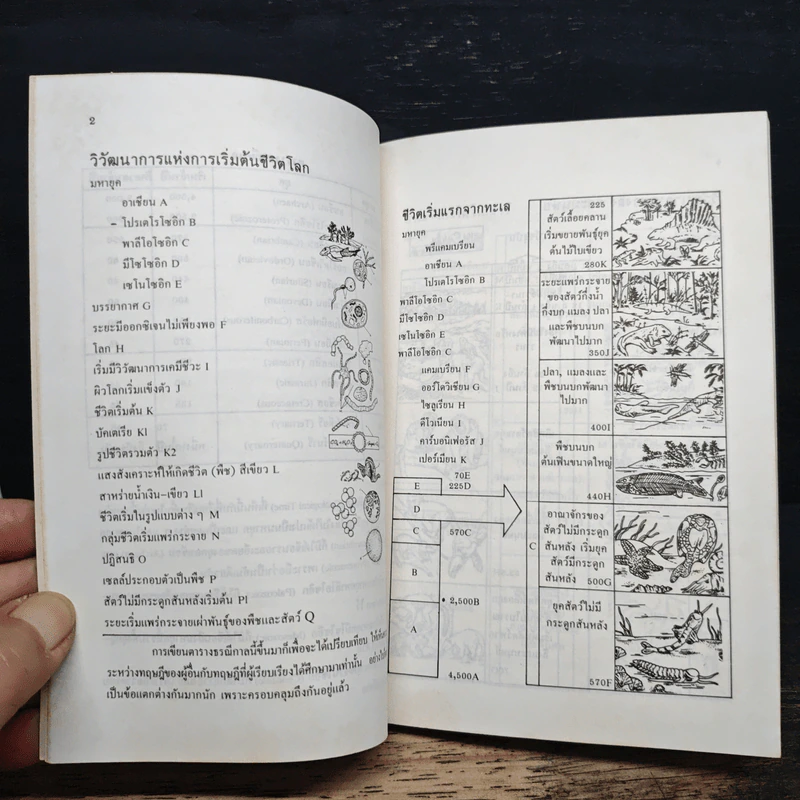 2
วิวัฒนาการแห่งการเริ่มต้นชีวิตโลก
มหายุค
อาเชียน A
– โปรเตโรโซอิก B
พาลีโอโซอิก C
มีโซโซอิก D
เซโนโซอิก E
บรรยากาศ G
ระยะมีออกซิเจนไม่เพียงพอ F
โลก H
เริ่มมีวิวัฒนาการเคมีชีวะ I
ผิวโลกเริ่มแข็งตัว J
ชีวิตเริ่มต้น K
บัคเตเรีย K1
รูปชีวิตรวมตัว K2
แสงสังเคราะห์ให้เกิดชีวิต (พืช) สีเขียว L
สาหร่ายน้ำเงิน-เขียว L1
ชีวิตเริ่มในรูปแบบต่าง ๆ M
กลุ่มชีวิตเริ่มแพร่กระจาย N
ปฏิสนธิ O
เซลล์ประกอบตัวเป็นพืช P
สัตว์ไม่มีกระดูกสันหลังเริ่มต้น P1
ระยะเริ่มแพร่กระจายเผ่าพันธุ์ของพืชและสัตว์ Q
การเขียนตารางธรณีกาลนี้ขึ้นมาก็เพื่อจะได้เปรียบเทียน
ระหว่างทฤษฎีของผู้อื่นกับทฤษฎีที่ผู้เรียบเรียงได้ศึกษามาเท่านั้น
เป็นข้อแตกต่างกันมากนัก เพราะครอบคลุมถึงกันอยู่แล้ว
ชีวิตเริ่มแรกจากทะเล
มหายุค
พรีแคมเบรียน
อาเชียน A
โปรเตโรโซอิก B
พาลีโอโซอิก C
มีโซโซอิก D
เซโนโซอิก E
พาลีโอโซอิก C
แคมเบรียน F
ออร์โดวิเชียน G
ไซลูเรียน H
ดีโวเนียน I
คาร์บอนิเฟอรัส J
เปอร์เมียน K
70E
E 225D
D
C 570C
B
2,500B
A
4,500A
225
สัตว์เลื้อยคลาน
เริ่มขยายพันธุ์ยุค
ต้นไม้ใบเขียว
280K
ระยะแพร่กระจาย
ของสัตว์กึ่งน้ำ
กึ่งบก แมลง ปลา
และพืชบนบก
พัฒนาไปมาก
350J
ปลา, แมลงและ
พืชบนบกพัฒนา
ไปมาก
400I
พืชบนบก
ต้นเฟินขนาดใหญ่
440H
C
อาณาจักรของ
สัตว์ไม่มีกระดูก
สันหลัง เริ่มยุค
สัตว์มีกระดูก
สันหลัง 500G
ยุคสัตว์ไม่มี
กระดูกสันหลัง
570F